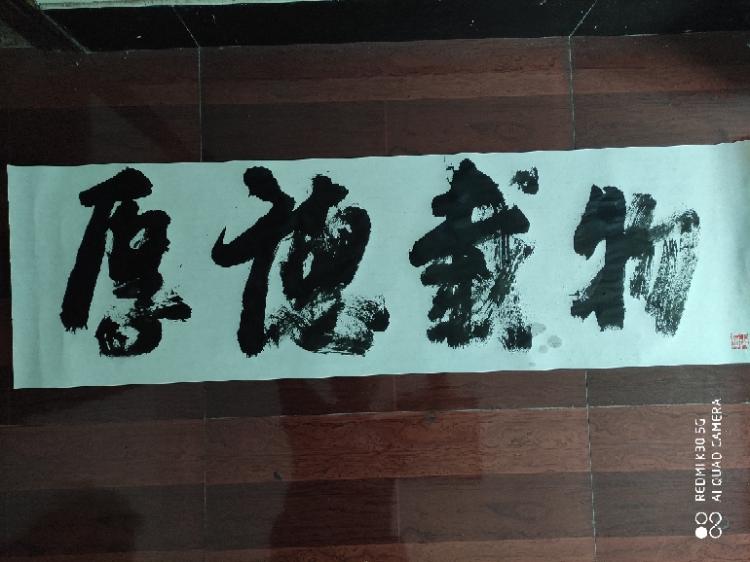 厚德载物
REDMI K30 5G
AI QUAD CAMERA